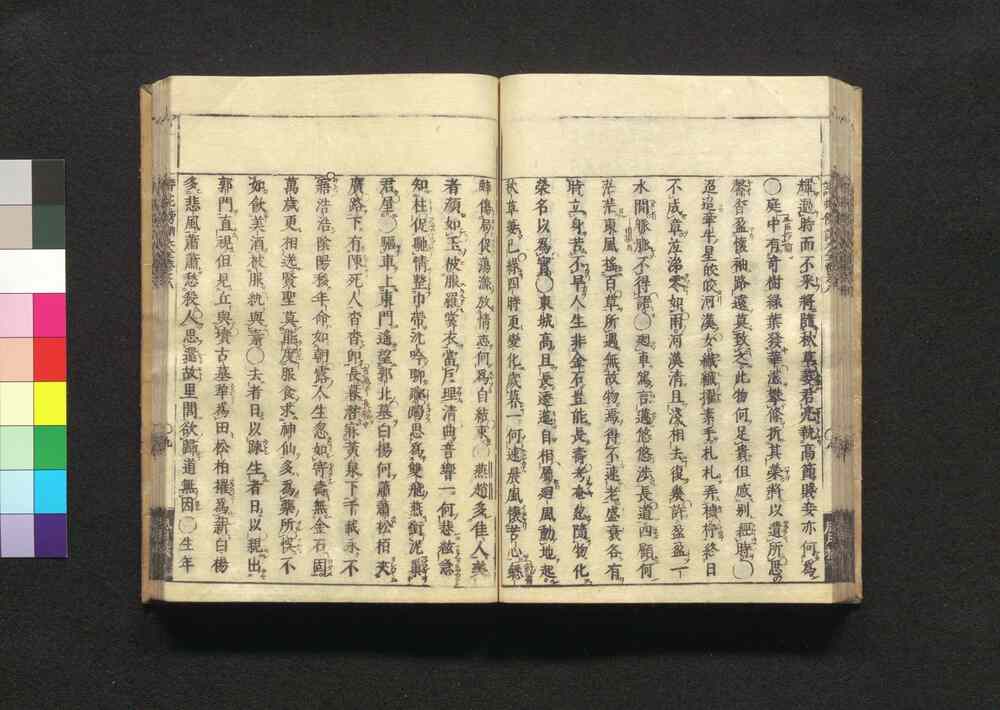 耀過時而不采將隨秋草萎君亮執高節賤妾亦何為
〇庭中有奇樹綠葉發華滋攀條折其榮將以遺所思
馨香盈懷袖路遠莫致之此物何足貴但感別經時〇
迢迢牽牛星皎皎河漢女纖纖擢素手札札弄機杼終日
不成章泣涕零如雨河漢清且淺相去復幾許盈盈一
水間脈脈不得語〇迴車駕言邁悠悠涉長道四顧何
茫茫東風搖百草所遇無故物焉得不速老盛衰各有
時立身苦不早人生非金石豈能長壽考奄忽隨物化
榮名以為寶〇東城高且長逶迤自相屬迴風動地起
秋草萋已綠四時更變化歲暮一何速晨風懷苦心蟋
蟀傷局促蕩滌放情志何為自結束〇燕趙多佳人美
者顏如玉被服羅裳衣當戶理清曲音響一何悲絃急
知柱促馳情整巾帶沈吟聊躑躅思為雙飛燕銜泥巢
君屋〇驅車上東門遙望郭北墓白楊何蕭蕭松栢夾
廣路下有陳死人杳杳即長暮潛寐黃泉下千載永不
寤浩浩陰陽移年命如朝露人生忽如寄壽無金石固
萬歲更相送賢聖莫能度服食求神仙多為藥所悞不
如飲美酒被服紈與素〇去者日以踈生者日以親出
郭門直視但見丘與墳古墓犂為田松柏摧為薪白楊
多悲風蕭蕭愁殺人思還故里閭欲歸道無因〇生年